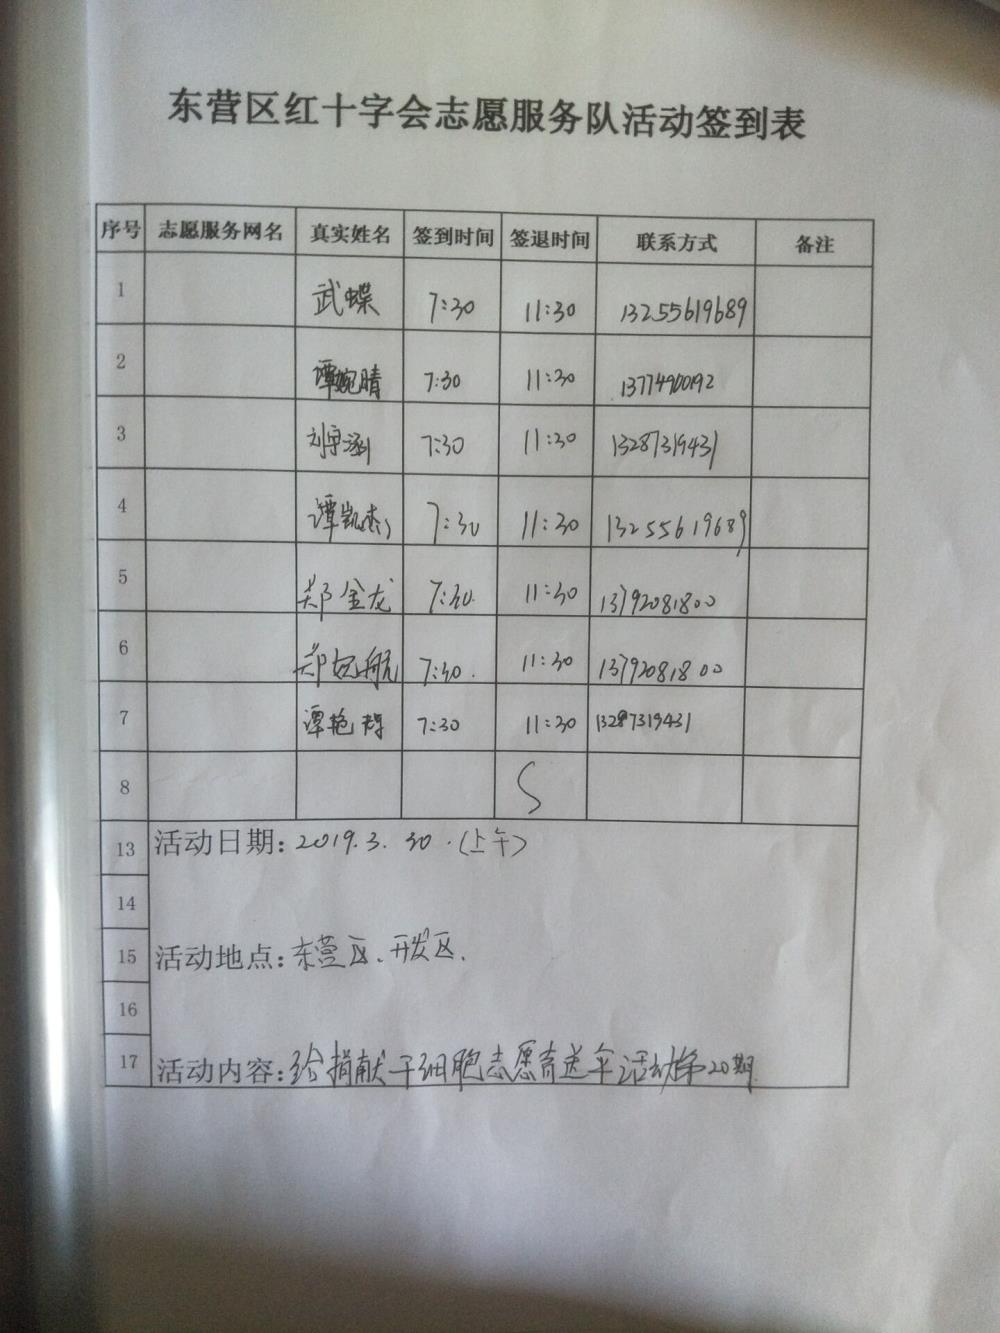 东营区红十字会志愿服务队活动签到表
序号 志愿服务网名 真实姓名 签到时间 签退时间 联系方式 备注
1 武蝶 7:30 11:30 13255619689
2 谭婉晴 7:30 11:30 13774900192
3 刘宇涵 7:30 11:30 13287319431
4 谭凯杰 7:30 11:30 13255619689
5 郑金龙 7:30 11:30 13792081800
6 郑航 7:30 11:30 13792081800
7 谭艳 7:30 11:30 13287319431
8 S
13 活动日期:2019.3.30.(上午)
14
15 活动地点:东营区、开发区.
16
17 活动内容:给捐献干细胞志愿者送伞活动第20期